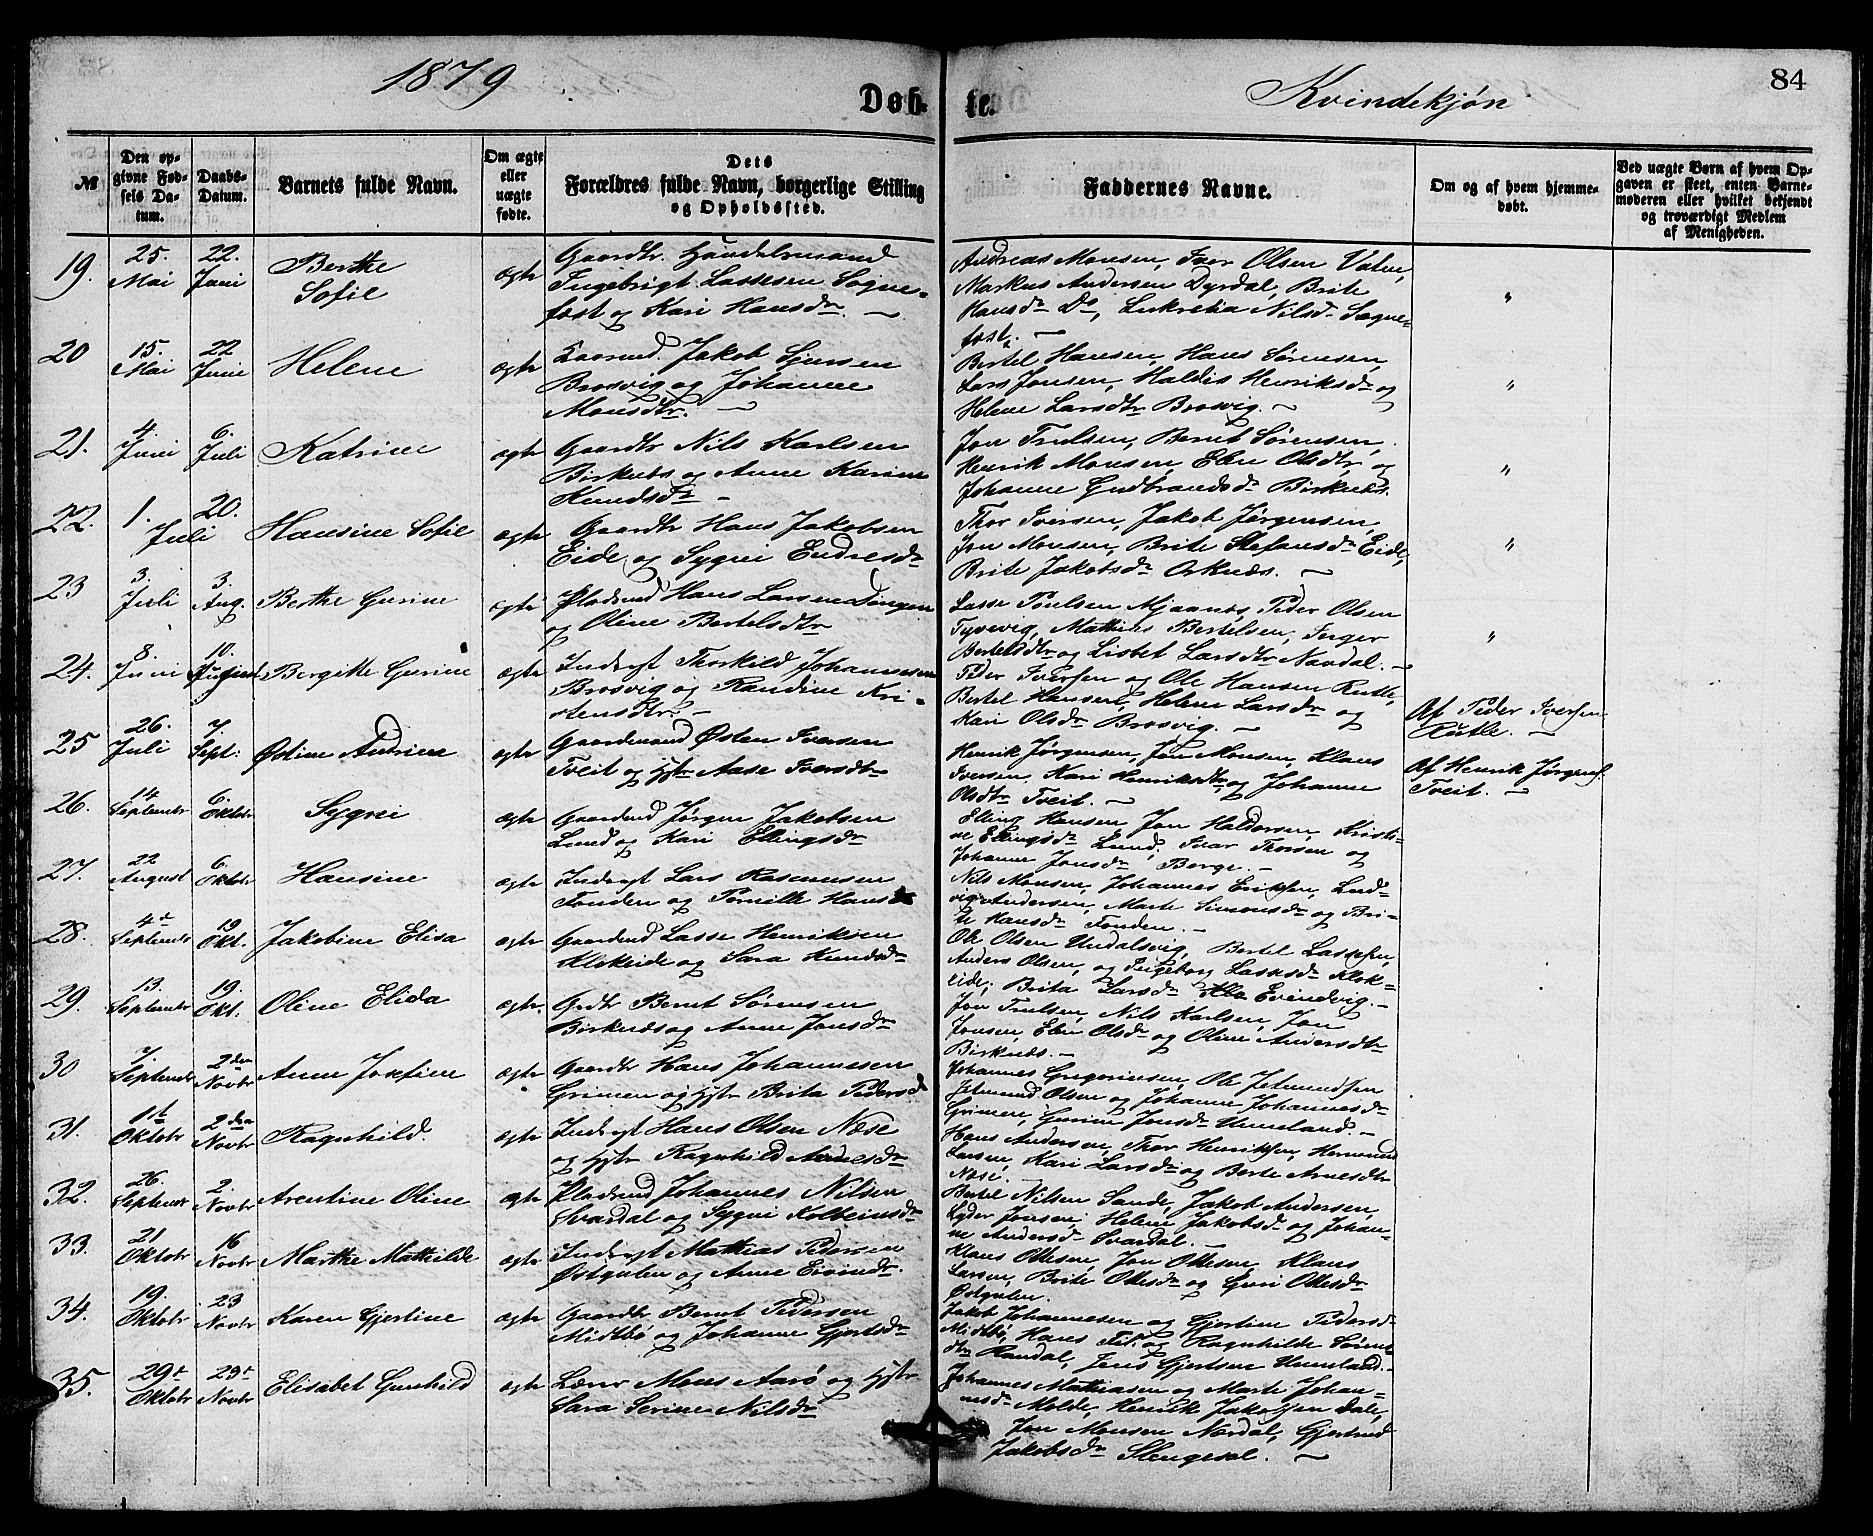 1879
Døb-
te.
Kvindekjøn
84
№
Den op-
givne Fød-
sels Da-
tum.
Daabs-
Datum.
Barnets fulde Navn.
Om ægte
eller
uægte
fødte.
Dets
Forældres fulde Navn, borgerlige Stilling
og Opholdssted.
Faddernes Navne.
Om og af hvem hjemme-
døbt.
Ved uægte Børn af hvem Op-
gaven er skeet, enten Barne-
moderen eller hvilket bekjendt
og troværdigt Medlem
af Menigheden.
19.
25.
Mai
22.
Juni
Berthe
Sofie
ægte
Gaardbr. Handelsmand
Ingebrigt Lassesen Sogne-
fest og Kari Hansdr. —
Andreas Monsen, Iver Olsen
Markus Andersen Dyrdal, Brite
Hansdr Do, Lukretia Nilsdr Sogne-
fest. —
"
20
15.
Mai
22
Juni
Helene
ægte
Jakob Sjursen
Brosvig og Johanne
Monsdtr. —
Bertel Hansen, Hans Sørensen,
Lars Jonsen, Haldis Henriksdr og
Helene Larsdtr Brosvig. —
"
21.
4.
Juni
6.
Juli
Katrine
ægte
Gaardbr Nils Karlsen
Birknes og Anne Karine
Knudsdr —
Jon Trulsen, Bernt Sørensen,
Henrik Monsen, Elen Olsdtr og
Johanne Gudbrandsdr Birknes.
"
22.
1.
Juli
20.
Hansine Sofie
ægte
Gaardbr Hans Jakobsen
Eide og Sygni Endresdr
Thor Iversen, Jakob Jørgensen,
Jon Monsen, Brite Stefansdr Eide,
Brite Jakobsdr Orknes. —
"
23
3.
Juli
3.
Aug.
Berthe Gurine
ægte
Pladsmd Hans Larsen
og Oline Bertelsdtr
Lasse Poulsen Mjaanes, Peder Olsen
Tyvevig, Mathias Bertelsen, Inger
Bertelsdtr og Lisbet Larsdtr Navdal. —
"
24.
8.
Juni
10.
August
Bergitte Gurine
ægte
Inderst Thorkild Johannesen
Brosvig og Randine Kri-
stensdtr. —
Peder Iversen og Ole Hansen Rutle,
Bertel Hansen, Helene Larsdr og
Kari Olsdr Brosvig. —
Af Peder Iversen
Rutle. —
25
26.
Juli
7.
Sept.
Østine Andrine
ægte
Gaardmand Østen Iversen
Tveit og Hstr Aase Iversdtr
Henrik Jørgensen, Jon Monsen, Klaus
Iversen, Kari Henriksdtr og Johanne
Olsdtr Tveit. —
Af Henrik Jørgens.
Tveit. —
26.
14
Septembr
6.
Oktobr
Sygni
ægte
Gaardmd Jørgen Jakobsen
Lund og Kari Ellingsdr
Elling Hansen, Jon Haldorsen, Kristi-
ne Ellingsdr Lund, Ivar Thorsen og
Johanne Jonsdr Berge. —
27.
22
August
6.
Oktobr
Hansine
ægte
Inderst Lars Rasmusen
Fonden og Pernille Hansdr
Nils Monsen, Johannes Eriksen, Lud-
vig Andersen, Marte Simonsdr og Bri-
te Hansdr Fonden. —
28.
4d
Septembr
19
Okt.
Jakobine Elisa
ægte
Gaardmd Lasse Henriksen
Klokeide og Sara Knudsdr
Ole Olsen Undalsvig, Bertel Lassesen,
Anders Olsen, og Ingeborg Lassesdr Klok-
eide, Brita Larsdr Evindvig. —
29.
13.
Septembr
19.
Okt.
Oline Elida
ægte.
Grdbr Bernt Sørensen
Birknes og Anne Jonsdr
Jon Trulsen, Nils Karlsen, Jon
Jonsen, Elen Olsdr og Oline Andersdtr
Birknes. —
30
7.
Septembr
2den
Novbr
Anne Josfine
ægte
Gaardbr Hans Johannesen
Grimen og Hstr Brita Pedersd
Johannes Gregoriusen, Ole Jetmundsen
Jetmund Olsen og Johanne Johannesdr
Grimen, Gurine Jonsdr Unneland. —
31.
1st
Oktobr
2den
Novbr
Ragnhild.
ægte
Inderst Hans Olsen Næse
og Hstr Ragnhild Arnesdr
Hans Andersen, Thor Henriksen, Hermund
Larsen, Kari Larsdr og Berte Arnesdtr
Næse. —
32.
26.
Septembr
2
Novbr
Arentine Oline
ægte
Pladsmd Johannes Nilsen
Svardal og Sygni Kolbeinsdr
Bertel Nilsen Sande, Jakob Andersen,
Lyder Jonsen, Helene Jakobsdr og Johan-
ne Andersdr Svardal. —
33.
21
Oktobr
16
Novbr
Marthe Mathilde
ægte
Inderst Mathias Pedersen
Østgulen og Anne Eivindr.
Klaus Ottesen, Jon Ottesen, Klaus
Larsen, Brite Ottesdr og Guri Ottesdr
Østgulen.
34.
19.
Oktobr
23
Novbr
Karen Gjertine
ægte
Gaardbr Bernt Pedersen
Midtbø og Johanne Gjertsdr
Jakob Johannesen og Gjertine Pedersdr
Midtbø, Hans Pet. og Ragnhilde Sørens
dtr Randal, Jens Gjertsen Unneland. —
35.
29t
Oktobr
23t
Novbr
Elisabet Gunhild
ægte
Lærer Mons Aarø og Hstr
Sara Serine Nilsdr
Johannes Mathiasen og Marte Johan-
nesdr Molde, Henrik Jakobsen Dale,
Jon Monsen Nordal, Gjertrud
Jakobsdr Slengesol. —